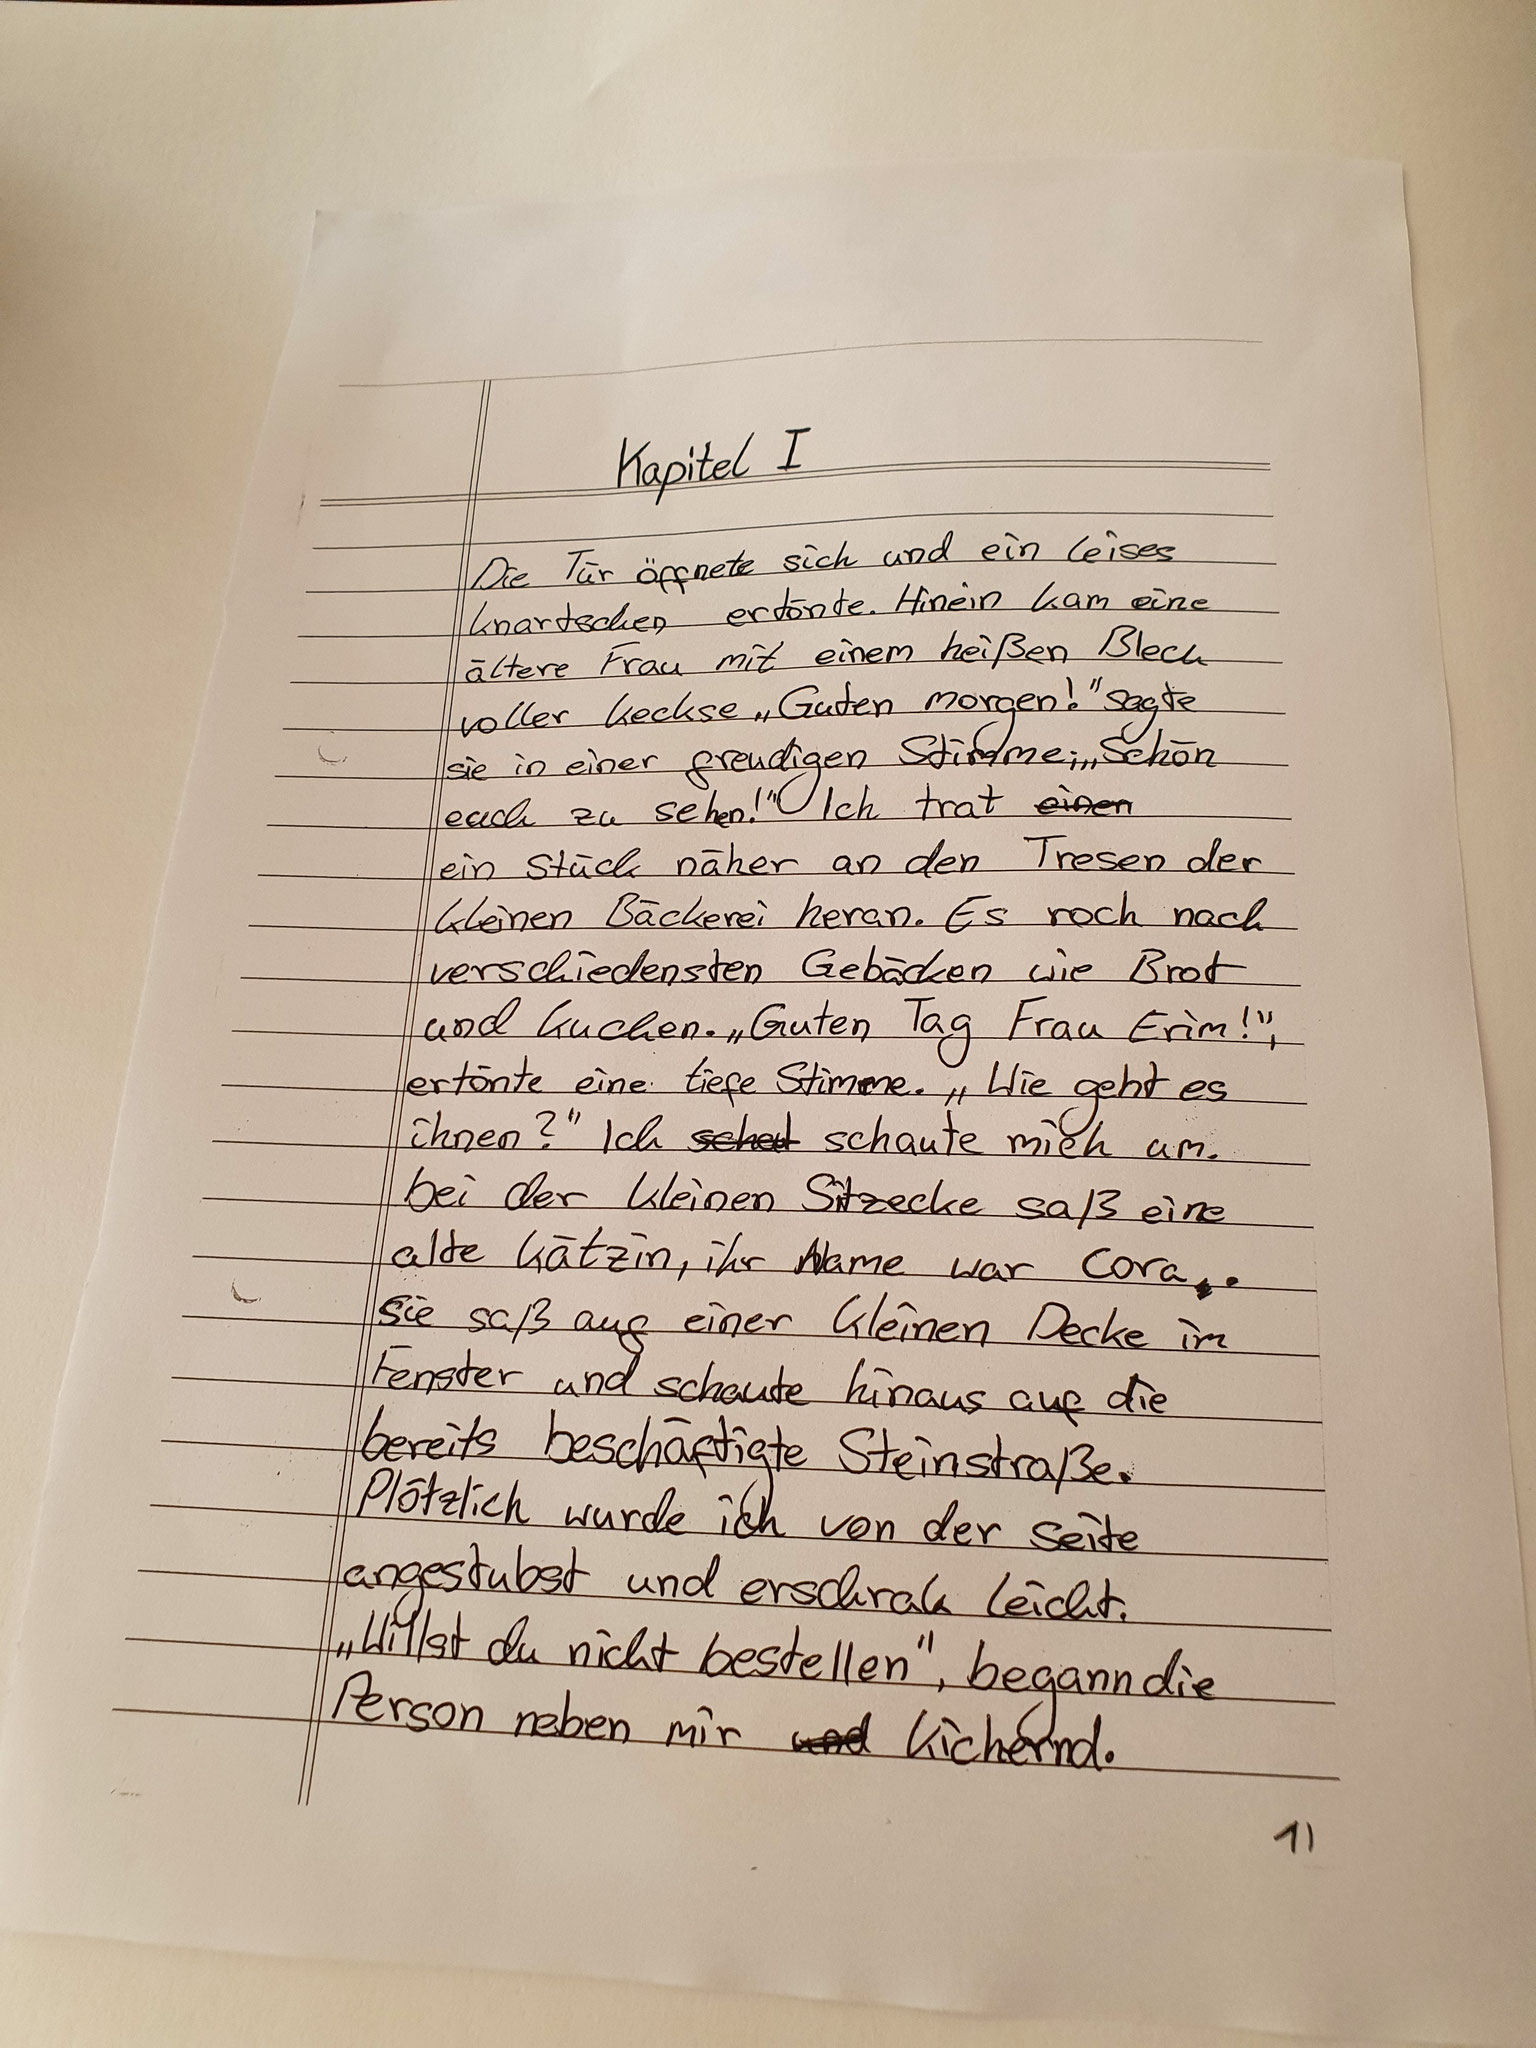 Kapitel I
Die Tür öffnete sich und ein leises
knartschen ertönte. Hinein kam eine
ältere Frau mit einem heißen Blech
voller keckse „Guten morgen!" sagte
sie in einer freudigen Stimme; „Schön
euch zu sehen!" Ich trat einen
ein stück näher an den Tresen der
kleinen Bäckerei heran. Es roch nach
verschiedensten Gebäcken wie Brot
und kuchen. „Guten Tag Frau Erim!",
ertönte eine tiefe Stimme. „Wie geht es
ihnen?" Ich schaute mich um.
bei der kleinen Sitzecke saß eine
alte kätzin, ihr Name war Cora.
Sie saß auf einer kleinen Decke im
Fenster und schaute hinaus auf die
bereits beschäftigte Steinstraße.
Plötzlich wurde ich von der seite
angestubst und erschrak leicht.
„Willst du nicht bestellen", begann die
Person neben mir und kichernd.
1)